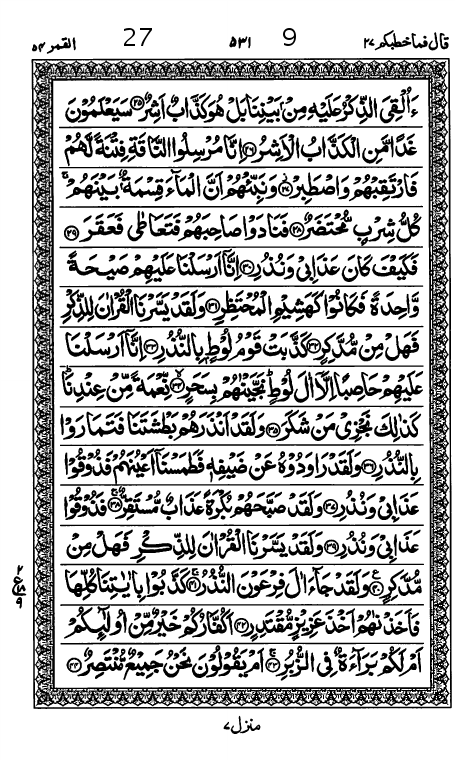 قال فما خطبكم ٢٧ 9 ٥٣١ 27 القمر ٥٤
ءَاُلْقِیَ الذِّكْرُ عَلَیْهِ مِنْۢ بَیْنِنَا بَلْ هُوَ كَذَّابٌ اَشِرٌ ﴿٢٥﴾ سَیَعْلَمُوْنَ
غَدًا مَّنِ الْكَذَّابُ الْاَشِرُ ﴿٢٦﴾ اِنَّا مُرْسِلُوا النَّاقَةِ فِتْنَةً لَّهُمْ
فَارْتَقِبْهُمْ وَاصْطَبِرْ ﴿٢٧﴾ وَنَبِّئْهُمْ اَنَّ الْمَآءَ قِسْمَةٌۢ بَیْنَهُمْ ۚ
كُلُّ شِرْبٍ مُّحْتَضَرٌ ﴿٢٨﴾ فَنَادَوْا صَاحِبَهُمْ فَتَعَاطٰی فَعَقَرَ ﴿٢٩﴾
فَكَیْفَ كَانَ عَذَابِیْ وَنُذُرِ ﴿٣٠﴾ اِنَّاۤ اَرْسَلْنَا عَلَیْهِمْ صَیْحَةً
وَّاحِدَةً فَكَانُوْا كَهَشِیْمِ الْمُحْتَظِرِ ﴿٣١﴾ وَلَقَدْ یَسَّرْنَا الْقُرْاٰنَ لِلذِّكْرِ
فَهَلْ مِنْ مُّدَّكِرٍ ﴿٣٢﴾ كَذَّبَتْ قَوْمُ لُوْطٍۭ بِالنُّذُرِ ﴿٣٣﴾ اِنَّاۤ اَرْسَلْنَا
عَلَیْهِمْ حَاصِبًا اِلَّاۤ اٰلَ لُوْطٍ ؕ نَجَّیْنٰهُمْ بِسَحَرٍ ﴿٣٤﴾ نِّعْمَةً مِّنْ عِنْدِنَا ؕ
كَذٰلِكَ نَجْزِیْ مَنْ شَكَرَ ﴿٣٥﴾ وَلَقَدْ اَنْذَرَهُمْ بَطْشَتَنَا فَتَمَارَوْا
بِالنُّذُرِ ﴿٣٦﴾ وَلَقَدْ رَاوَدُوْهُ عَنْ ضَیْفِهٖ فَطَمَسْنَاۤ اَعْیُنَهُمْ فَذُوْقُوْا
عَذَابِیْ وَنُذُرِ ﴿٣٧﴾ وَلَقَدْ صَبَّحَهُمْ بُكْرَةً عَذَابٌ مُّسْتَقِرٌّ ﴿٣٨﴾ فَذُوْقُوْا
عَذَابِیْ وَنُذُرِ ﴿٣٩﴾ وَلَقَدْ یَسَّرْنَا الْقُرْاٰنَ لِلذِّكْرِ فَهَلْ مِنْ
مُّدَّكِرٍ ﴿٤٠﴾ وَلَقَدْ جَآءَ اٰلَ فِرْعَوْنَ النُّذُرُ ﴿٤١﴾ كَذَّبُوْا بِاٰیٰتِنَا كُلِّهَا
فَاَخَذْنٰهُمْ اَخْذَ عَزِیْزٍ مُّقْتَدِرٍ ﴿٤٢﴾ اَكُفَّارُكُمْ خَیْرٌ مِّنْ اُولٰٓئِكُمْ
اَمْ لَكُمْ بَرَآءَةٌ فِی الزُّبُرِ ﴿٤٣﴾ اَمْ یَقُوْلُوْنَ نَحْنُ جَمِیْعٌ مُّنْتَصِرٌ ﴿٤٤﴾
منزل ٧